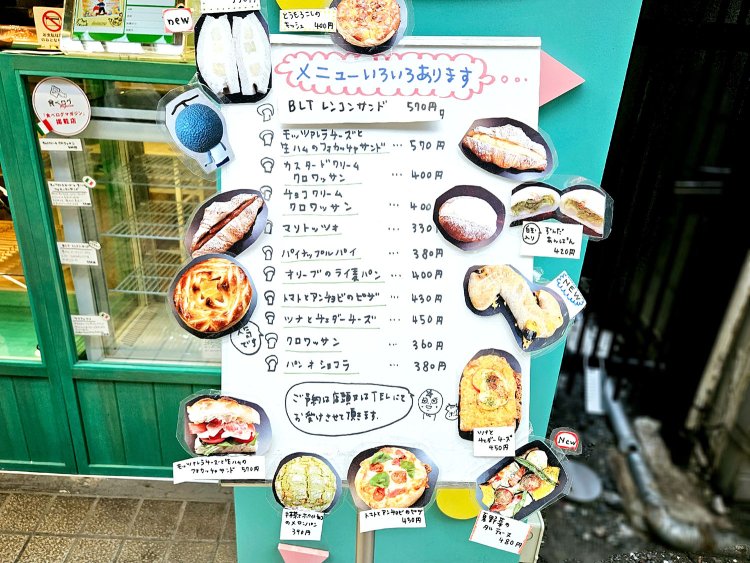 new
とうもろこしの
モッシュ 400円
メニューいろいろあります
BLT レンコンサンド 570円
モッツァレラチーズと
生ハムのフォカッチャサンド … 570円
カスタードクリーム
クロワッサン … 400円
チョコクリーム
クロワッサン … 400
マリトッツォ … 330
パイナップルパイ … 380円
オリーブのライ麦パン … 400円
トマトとアンチョビのピザ … 430円
ツナとチェダーチーズ … 450円
クロワッサン … 360円
パン オ ショコラ … 380円
人気
です
ご予約は店頭またはTELにて
お受けさせて頂きます。
食べログ
「食べログマガジン」
掲載店
ずんだ
あんぱん
420円
NEW
ツナと
チェダーチーズ
450円
New
夏野菜の
タルティーヌ
480円
モッツァレラチーズと生ハムの
フォカッチャサンド 570円
のメロンパン
390円
トマトとアンチョビのピザ
430円